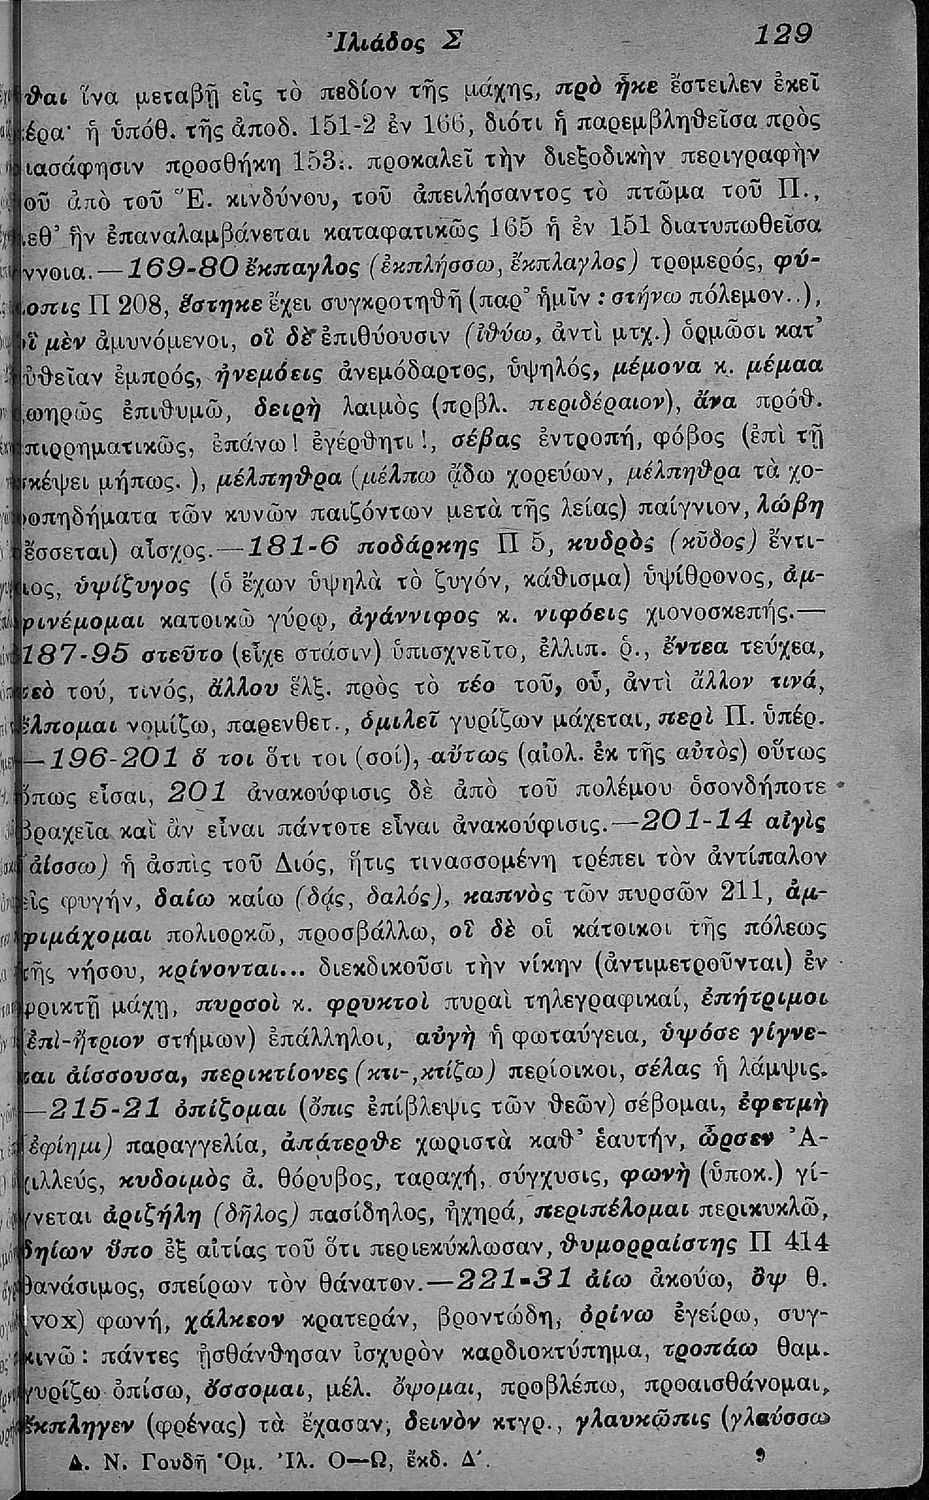 Ἰλιάδος Σ 129
θαι ἵνα μεταβῇ εἰς τὸ πεδίον τῆς μάχης, πρὸ ἧκε ἔστειλεν ἐκεῖ
έρα· ἡ ὑπόθ. τῆς ἀποδ. 151-2 ἐν 166, διότι ἡ παρεμβληθεῖσα πρὸς
ιασάφησιν προσθήκη 153:. προκαλεῖ τὴν διεξοδικὴν περιγραφὴν
οῦ ἀπὸ τοῦ Ἕ. κινδύνου, τοῦ ἀπειλήσαντος τὸ πτῶμα τοῦ Π.,
εθ’ ἣν ἐπαναλαμβάνεται καταφατικῶς 165 ἡ ἐν 151 διατυπωθεῖσα
ννοια.—169-80 ἔκπαγλος (ἐκπλήσσω, ἔκπλαγλος) τρομερός, φύ-
οπις Π 208, ἕστηκε ἔχει συγκροτηθῆ (παρ’ ἡμῖν : στήνω πόλεμον..),
ἳ μὲν ἀμυνόμενοι, οἳ δὲ ἐπιθύουσιν (ἰθύω, ἀντὶ μτχ.) ὁρμῶσι κατ’
ὐθεῖαν ἐμπρός, ἠνεμόεις ἀνεμόδαρτος, ὑψηλός, μέμονα κ. μέμαα
ωηρῶς ἐπιθυμῶ, δειρὴ λαιμὸς (πρβλ. περιδέραιον), ἄνα πρόθ.
πιρρηματικῶς, ἐπάνω! ἐγέρθητι!, σέβας ἐντροπή, φόβος (ἐπὶ τῇ
κέψει μήπως. ), μέλπηθρα (μέλπω ᾄδω χορεύων, μέλπηθρα τὰ χο-
οπηδήματα τῶν κυνῶν παιζόντων μετὰ τῆς λείας) παίγνιον, λώβη
ἔσσεται) αἶσχος.—181-6 ποδάρκης Π 5, κυδρὸς (κῦδος) ἔντι-
ος, ὑψίζυγος (ὁ ἔχων ὑψηλὰ τὸ ζυγόν, κάθισμα) ὑψίθρονος, ἀμ-
ινέμομαι κατοικῶ γύρῳ, ἀγάννιφος κ. νιφόεις χιονοσκεπής.—
187-95 στεῦτο (εἶχε στάσιν) ὑπισχνεῖτο, ἐλλιπ. ῥ., ἔντεα τεύχεα,
τεὸ τού, τινός, ἄλλου ἕλξ. πρὸς τὸ τέο τοῦ, οὗ, ἀντὶ ἄλλον τινά,
ἔλπομαι νομίζω, παρενθετ., ὁμιλεῖ γυρίζων μάχεται, περὶ Π. ὑπέρ.
—196-201 ὅ τοι ὅτι τοι (σοί), αὔτως (αἰολ. ἐκ τῆς αὐτὸς) οὕτως
ὅπως εἶσαι, 201 ἀνακούφισις δὲ ἀπὸ τοῦ πολέμου ὁσονδήποτε
βραχεῖα καὶ ἂν εἶναι πάντοτε εἶναι ἀνακούφισις.—201-14 αἰγὶς
ἀΐσσω) ἡ ἀσπὶς τοῦ Διός, ἥτις τινασσομένη τρέπει τὸν ἀντίπαλον
εἰς φυγήν, δαίω καίω (δᾴς, δαλός), καπνὸς τῶν πυρσῶν 211, ἀμ-
φιμάχομαι πολιορκῶ, προσβάλλω, οἳ δὲ οἱ κάτοικοι τῆς πόλεως
τῆς νήσου, κρίνονται... διεκδικοῦσι τὴν νίκην (ἀντιμετροῦνται) ἐν
φρικτῇ μάχῃ, πυρσοὶ κ. φρυκτοὶ πυραὶ τηλεγραφικαί, ἐπήτριμοι
(ἐπὶ-ἤτριον στήμων) ἐπάλληλοι, αὐγὴ ἡ φωταύγεια, ὑψόσε γίγνε-
ται ἀΐσσουσα, περικτίονες (κτι-,κτίζω) περίοικοι, σέλας ἡ λάμψις.
—215-21 ὀπίζομαι (ὄπις ἐπίβλεψις τῶν θεῶν) σέβομαι, ἐφετμὴ
ἐφίημι) παραγγελία, ἀπάτερθε χωριστὰ καθ’ ἑαυτήν, ὦρσεν Ἀ-
χιλλεύς, κυδοιμὸς ἀ. θόρυβος, ταραχή, σύγχυσις, φωνὴ (ὑποκ.) γί-
νεται ἀριζήλη (δῆλος) πασίδηλος, ἠχηρά, περιπέλομαι περικυκλῶ,
δηίων ὕπο ἐξ αἰτίας τοῦ ὅτι περιεκύκλωσαν, θυμορραΐστης Π 414
θανάσιμος, σπείρων τὸν θάνατον.—221-31 ἀΐω ἀκούω, ὂψ θ.
(vox) φωνή, χάλκεον κρατεράν, βροντώδη, ὀρίνω ἐγείρω, συγ-
κινῶ: πάντες ᾐσθάνθησαν ἰσχυρὸν καρδιοκτύπημα, τροπάω θαμ.
γυρίζω ὀπίσω, ὄσσομαι, μέλ. ὄψομαι, προβλέπω, προαισθάνομαι,
ἔκπληγεν (φρένας) τὰ ἔχασαν, δεινὸν κτγρ., γλαυκῶπις (γλαύσσω
Δ. Ν. Γουδῆ Ὁμ. Ἰλ. Ο—Ω, ἔκδ. Δ΄. 9